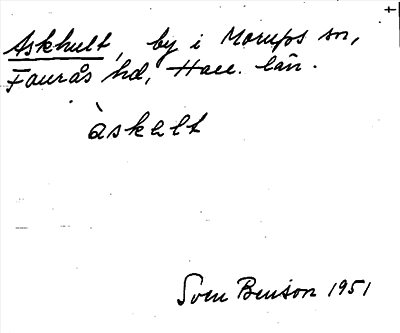 Askhult, by i Morups sn,
Faurås hd, Hall. län.
àskelt
Sven Benson 1951